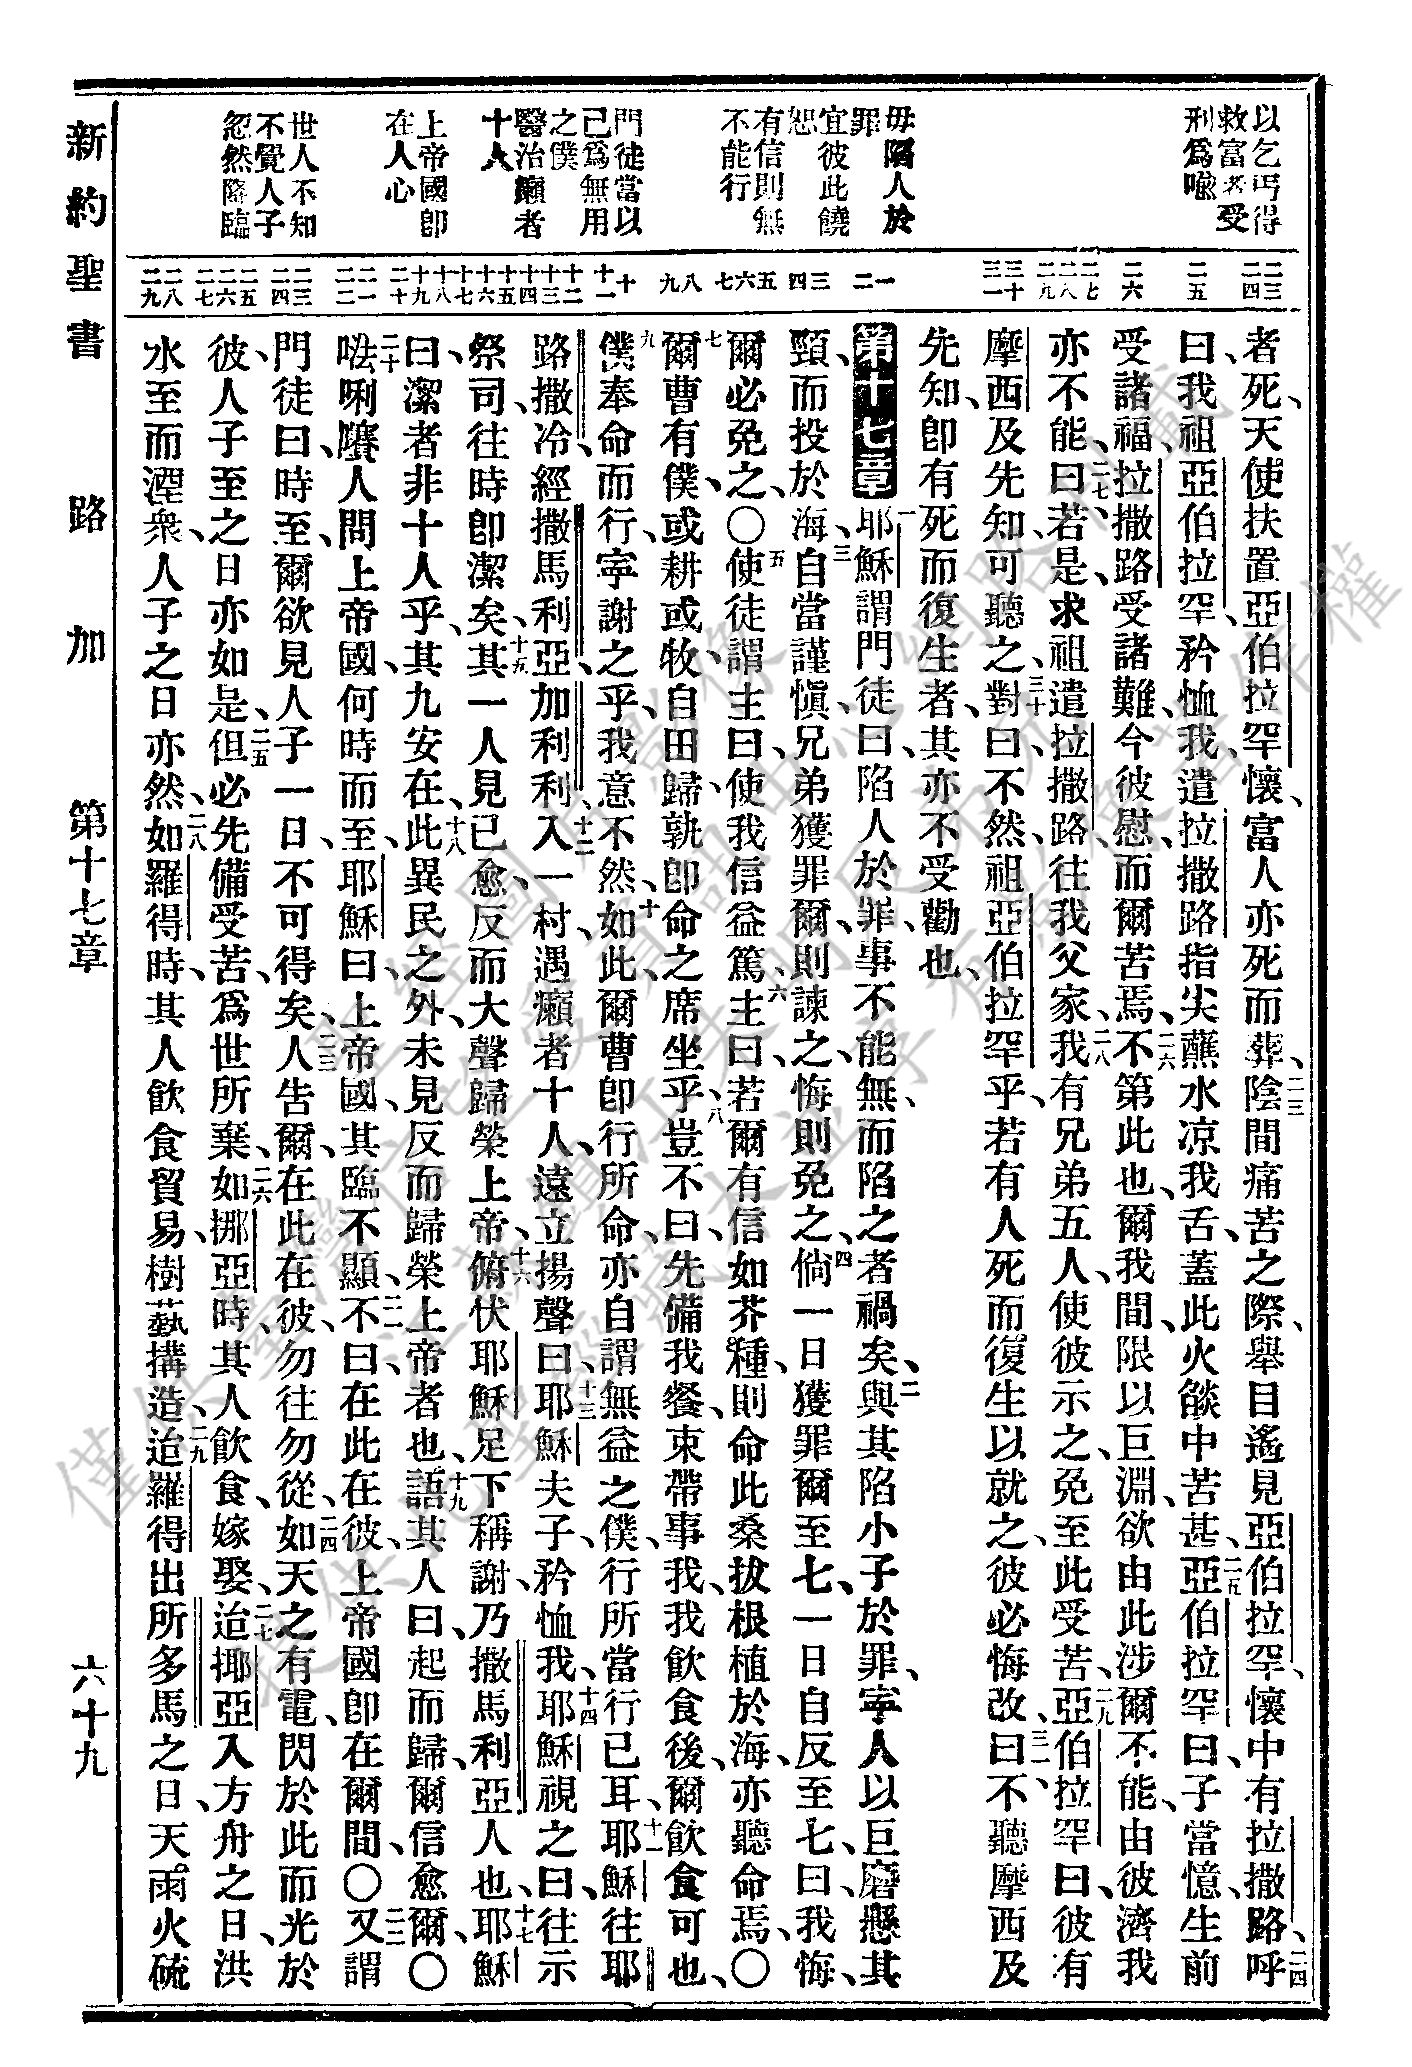 以乞丐得
救富者受
刑爲喩
毋陷人於
罪
宜彼此饒
恕
有信則無
不能行
門徒當以
已爲無用
之僕
醫治癩者
十人
上帝國卽
在人心
世人不知
不覺人子
忽然降臨
二三
二四
二五
二六
二七
二八
二九
三十
三一
一
二
三
四
五
六
七
八
九
十
十一
十二
十三
十四
十五
十六
十七
十八
十九
二十
二一
二二
二三
二四
二五
二六
二七
二八
二九
者死、天使扶置亞伯拉罕懷、富人亦死而葬、二三陰間痛苦之際、舉目遙見亞伯拉罕、懷中有拉撒路、二四呼
曰、我祖亞伯拉罕、矜恤我、遣拉撒路指尖蘸水凉我舌、蓋此火燄中苦甚、二五亞伯拉罕曰、子當憶生前
受諸福、拉撒路受諸難、今彼慰而爾苦焉、二六不第此也、爾我間、限以巨淵、欲由此涉爾不能、由彼濟我
亦不能、二七曰、若是、求祖遣拉撒路往我父家、二八我有兄弟五人、使彼示之、免至此受苦、二九亞伯拉罕曰、彼有
摩西及先知可聽之、三十對曰、不然、祖亞伯拉罕乎、若有人死而復生以就之、彼必悔改、三一曰、不聽摩西及
先知、卽有死而復生者、其亦不受勸也、
第十七章 一耶穌謂門徒曰、陷人於罪、事不能無、而陷之者禍矣、二與其陷小子於罪、寧人以巨磨懸其
頸、而投於海、三自當謹愼、兄弟獲罪爾、則諫之、悔則免之、四倘一日獲罪爾至七、一日自反至七、曰、我悔、
爾必免之、〇五使徒謂主曰、使我信益篤、六主曰、若爾有信如芥種、則命此桑拔根植於海、亦聽命焉、〇
七爾曹有僕、或耕或牧、自田歸、孰卽命之席坐乎、八豈不曰、先備我餐、束帶事我、我飮食後、爾飮食可也、
九僕奉命而行、寧謝之乎、我意不然、十如此、爾曹卽行所命、亦自謂無益之僕、行所當行已耳、十一耶穌往耶
路撒冷、經撒馬利亞加利利、十二入一村、遇癩者十人、遠立揚聲曰、十三耶穌夫子、矜恤我、十四耶穌視之曰、往示
祭司、往時卽潔矣、十五其一人見已愈、反而大聲歸榮上帝、十六俯伏耶穌足下稱謝、乃撒馬利亞人也、十七耶穌
曰、潔者非十人乎、其九安在、十八此異民之外、未見反而歸榮上帝者也、十九語其人曰、起而歸、爾信愈爾、〇
二十𠵽唎㘔人問上帝國、何時而至、耶穌曰、上帝國、其臨不顯、二一不曰、在此在彼、上帝國卽在爾間、〇二二又謂
門徒曰、時至、爾欲見人子一日、不可得矣、二三人告爾、在此在彼、勿往勿從、二四如天之有電、閃於此而光於
彼、人子至之日亦如是、二五但必先備受苦、爲世所棄、二六如挪亞時、其人飮食、嫁娶、二七迨挪亞入方舟之日、洪
水至而湮衆、人子之日亦然、二八如羅得時、其人飮食貿易、樹藝搆造、二九迨羅得出所多馬之日、天雨火硫
新約聖書 路加 第十七章 六十九